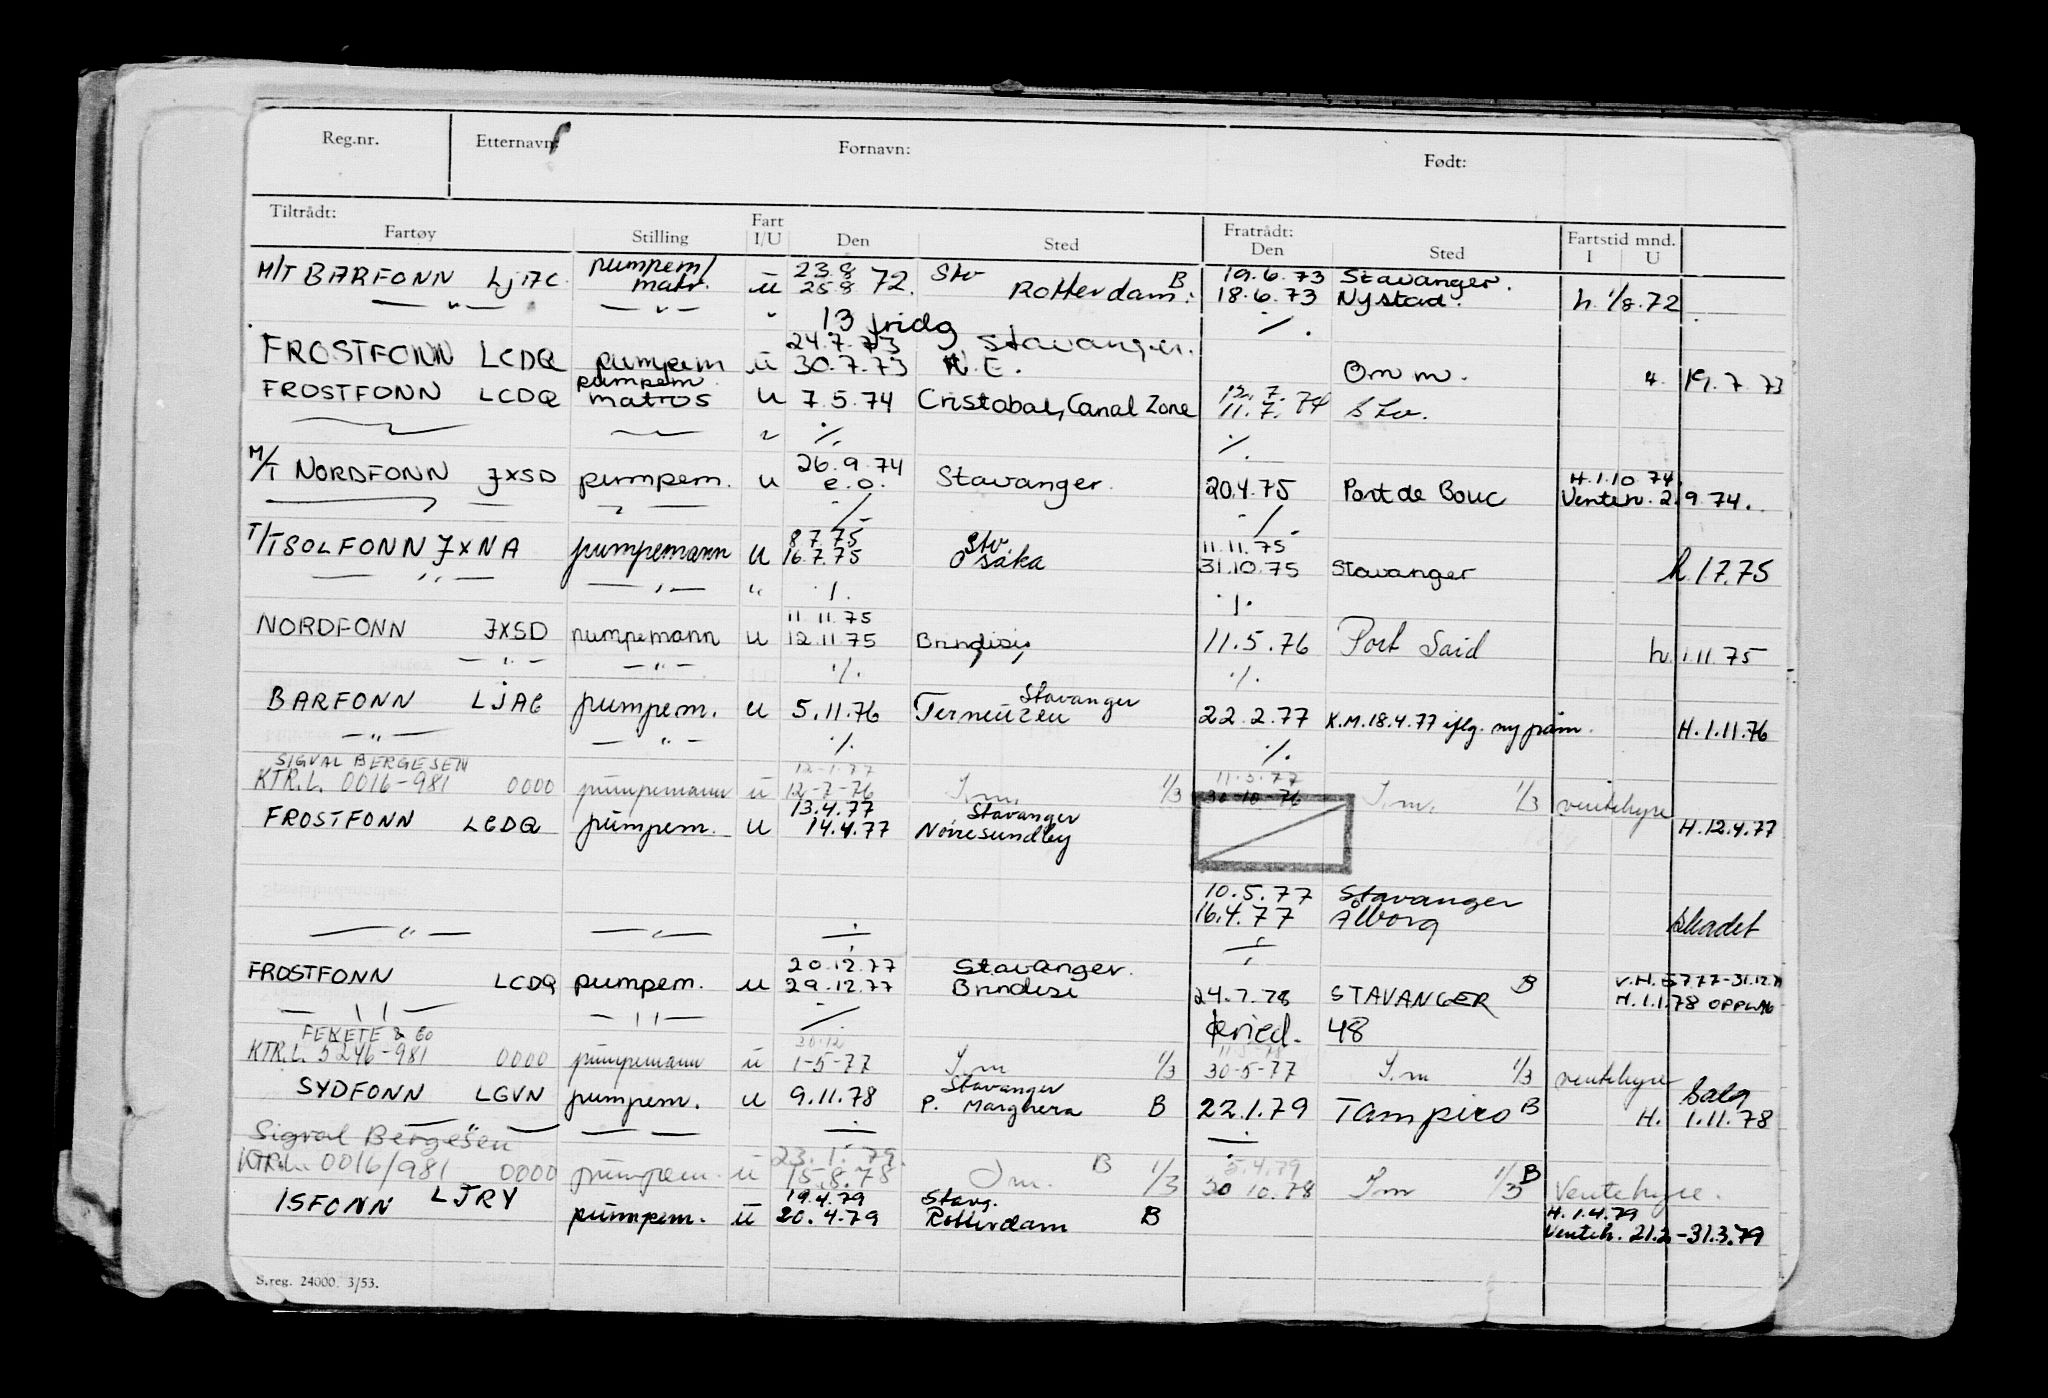 Reg.nr. Etternavn: Fornavn: Født:
Tiltrådt: Fratrådt: Fartstid mnd.
Fartøy Stilling Fart I/U Den Sted Den Sted I U
M/T BARFONN LJAC pumpem/ matr. u 23.8 25.8 72. Stv Rotterdam. B 19.6.73 Stavanger. 18.6.73 Nystad. h. 1/8.72
— " — — " — " 13 fridg ./.
FROSTFONN LCDQ pumpem u 24.7.73 Stavanger. 30.7.73 N.E. Om m. 19.7.73
FROSTFONN LCDQ pumpem matros u 7.5.74 Cristobal, Canal Zone 12.7. 11.7.74 Stv.
./. ./.
M/T NORDFONN JXSD pumpem. u 26.9.74 e.o. Stavanger. 20.4.75 Port de Bouc H.1.10 74. Venteh. 2.9.74.
./. ./.
T/T SOLFONN JXNA pumpemann u 8.7.75 16.7.75 Stv. Osaka 11.11.75 31.10.75 Stavanger h.1.7.75
— " — — " — " ./. ./.
NORDFONN JXSD pumpemann u 11.11.75 12.11.75 Brindisi 11.5.76 Port Said h.1.11.75
— " — — " — ./. ./.
BARFONN LJAG pumpem. u 5.11.76 Stavanger Terneuzen 22.2.77 K.M.18.4.77 iflg. ny påm. H.1.11.76
— " — — " — ./. ./.
SIGVAL BERGESEN 12-1-77 11-3-77
KTR.L. 0016-981 0000 pumpemann u 12-7-76 I.m. 1/3 30-10-76 I.m. 1/3 ventehyre
FROSTFONN LCDQ pumpem. u 13.4.77 14.4.77 Stavanger Nørresundby H.12.4.77
10.5.77 Stavanger
16.4.77 Ålborg Skadet
— " — — " — ./. ./.
FROSTFONN LCDQ pumpem. u 20.12.77 29.12.77 Stavanger. Brindisi 24.7.78 STAVANGER B V.H. 5777-31.12.77 H.1.1.78
— 11 — — 11 — ./. 48
FEKETE & Co 20.12
KTR.L. 5246-981 0000 pumpemann u 1-5-77 I.m 1/3 30-5-77 I.m 1/3 ventehyre
SYDFONN LGVN pumpem. u 9.11.78 Stavanger P. Marghera B 22.1.79 Tampico B Salg H. 1.11.78
— " — — — ./. ./.
Sigval Bergesen 23.1.79. 5.4.79
KTR.L. 0016/981 0000 pumpem. u 15.8.78 I m. B 1/3 30 10.78 I m 1/3 B Ventehyre.
ISFONN LJRY pumpem. u 19.4.79 20.4.79 Stavg. Rotterdam B H. 1.4.79 Venteh. 21.2-31.3.79
S.reg. 24000. 3/53.